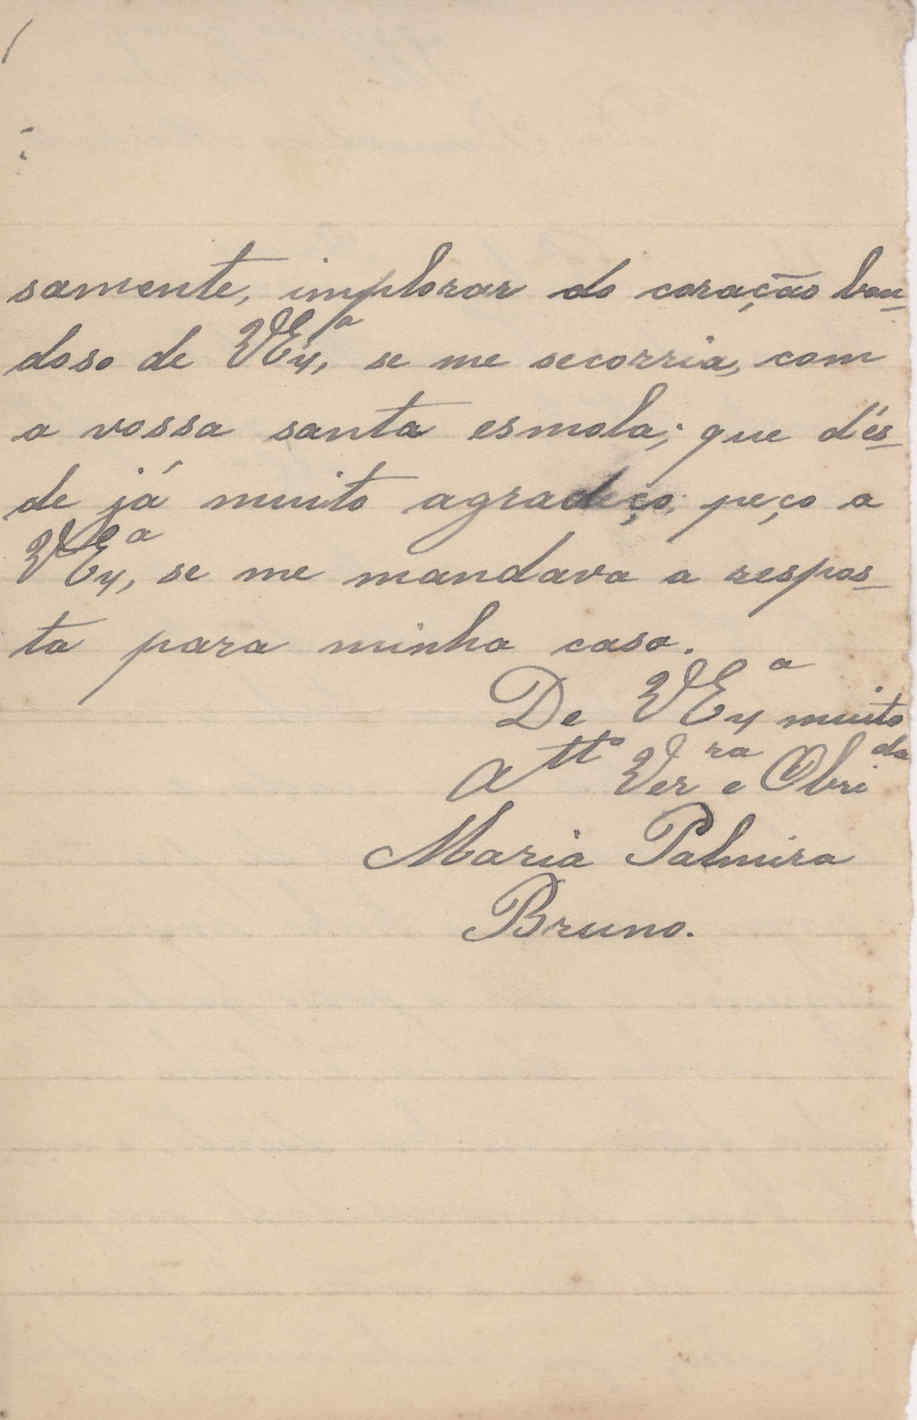 samente, implorar do coração bon-
doso de VEx.ª, se me secorria, com
a vossa santa esmola; que dés-
de já muito agradeço, peço a
VEx.ª, se me mandava a respos-
ta para minha casa.
De VEx.ª muito
Att.º Ver.ra e Obri.da
Maria Palmira
Bruno.